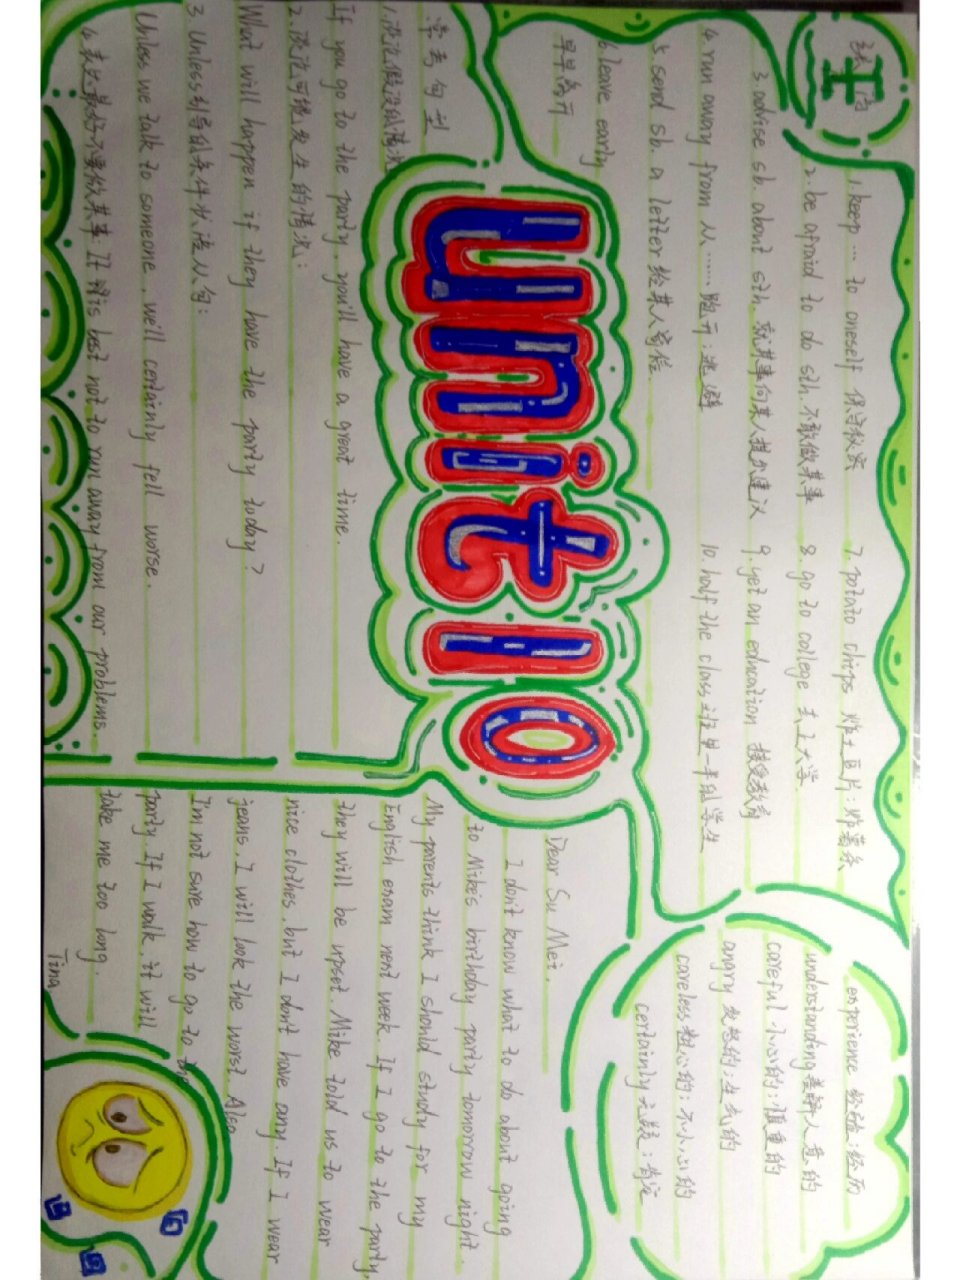 unit 10
1. keep … to oneself 保守秘密
2. be afraid to do sth. 不敢做某事
3. advise sb. about sth. 就某事向某人提出建议
4. run away from 从……跑开；逃避
5. send sb. a letter 给某人寄信
6. leave early
早早离开
7. potato chips 炸土豆片；炸薯条
8. go to college 去上大学
9. get an education 接受教育
10. half the class 班里一半的学生
experience 经验；经历
understanding 善解人意的
careful 小心的；慎重的
angry 发怒的；生气的
careless 粗心的；不小心的
certainly 无疑；肯定
常考句型
1. 谈论假设的情况
If you go to the party, you'll have a great time.
2. 谈论可能发生的情况：
What will happen if they have the party today?
3. Unless引导的条件状语从句：
Unless we talk to someone, we'll certainly fell worse.
4. 表达最好不要做某事 It is best not to run away from our problems.
Dear Su Mei,
I don't know what to do about going
to Mike's birthday party tomorrow night.
My parents think I should study for my
English exam next week. If I go to the party,
they will be upset. Mike told us to wear
nice clothes, but I don't have any. If I wear
jeans, I will look the worst. Also
I'm not sure how to go to the
party. If I walk, it will
take me too long.
Tina